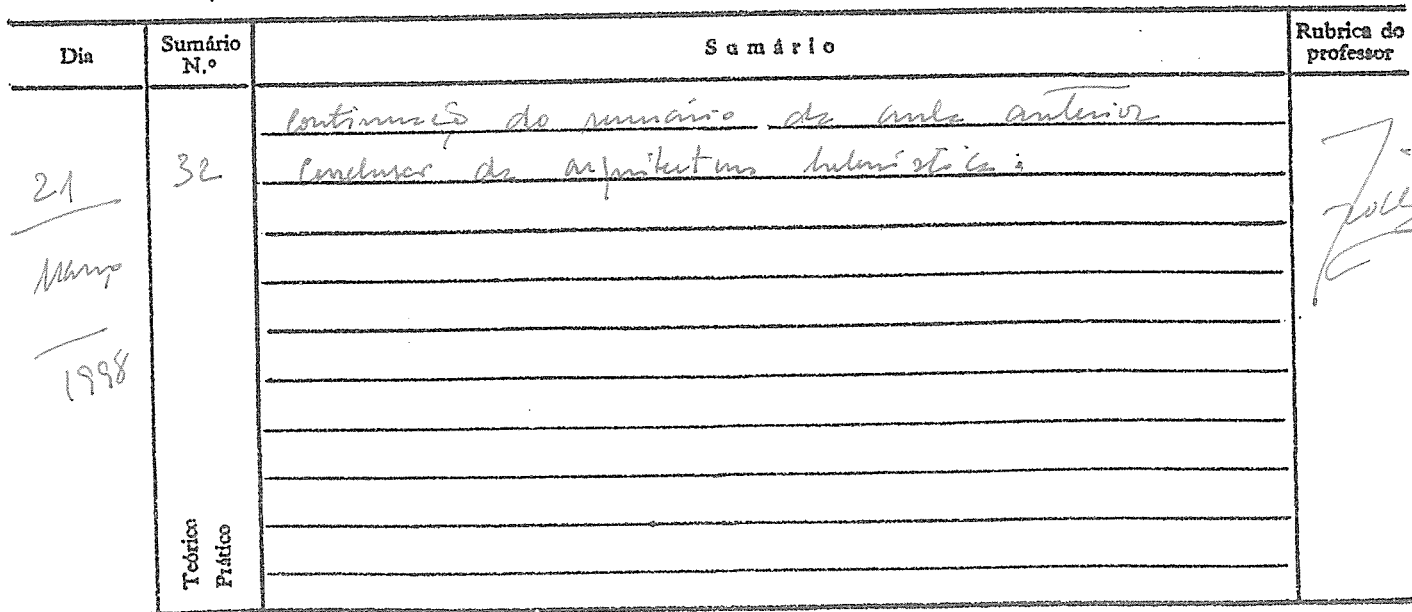 Dia
Sumário N.º
Sumário
Rubrica do professor
21
Março
1998
32
Continuação do sumário da aula anterior
Conclusão da arquitetura helenística:
Teórico
Prático